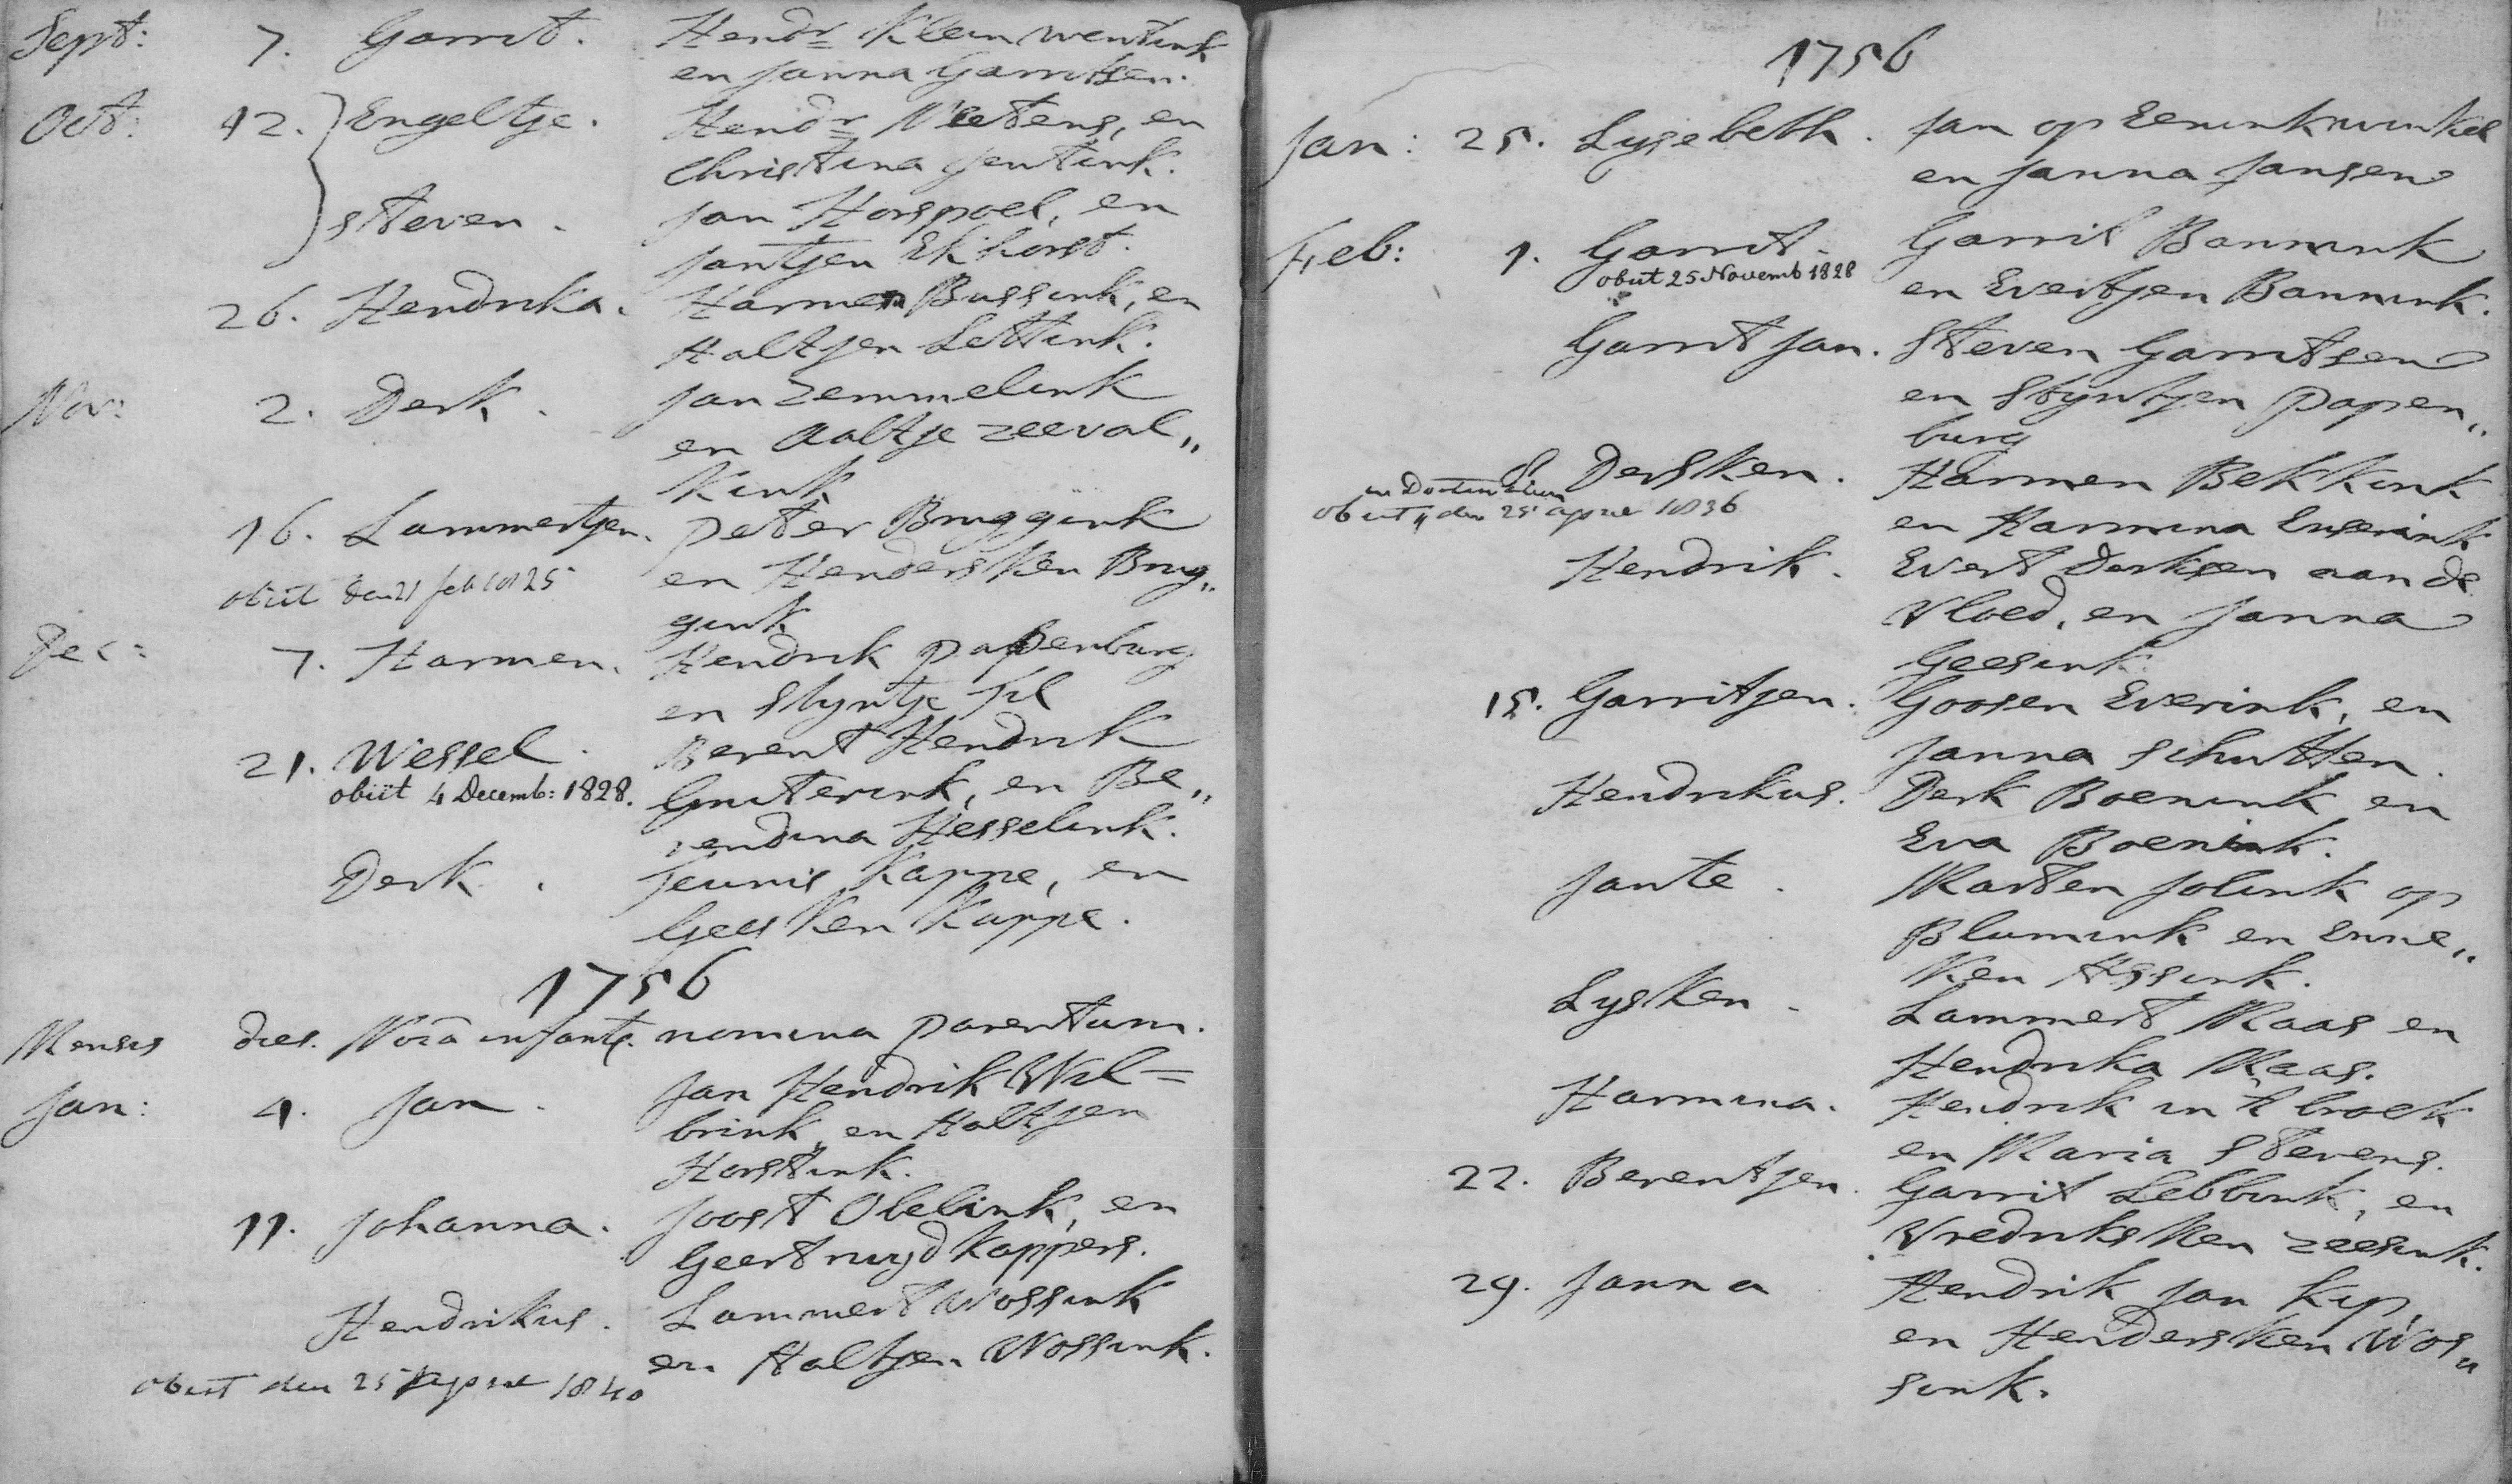 Sept: 7. Garrit. Hendr Klein wentink
en Janna Garritsen.
Oct: 12. Engeltje. Hendr Wertens, en
Christina Jentink.
Steven. Jan Horspoel, en
Jantjen Ekhorst.
26. Hendrika. Harmen Bussink, en
Aaltjen Lettink.
Nov: 2. Derk. Jan Zemmelink
en Aaltje zeeval„
kink
16. Lammertjen. Peter Bruggink
en Hendersken Brug„
obiit den 21 feb 1825
gink
Dec: 7. Harmen. Hendrik Papenburg
en Styntje Jil
21. Wessel. Berent Hendrik
obiit 4 Decemb: 1828. Gruterink, en Be„
rendina Hesselink.
Derk. Teunis Kappe, en
Geesken Kappe.
1756
Mensis dies. Noia infantș. nomina parentum.
Jan: 4. Jan. Jan Hendrik Wil=
brink, en Aaltjen
Horstink.
11. Johanna. Joost Obelink, en
Geertruyd Kappers.
Hendrikus. Lammert Wossink
en Aaltjen Wossink.
obiit den 25 1840
1756
Jan: 25. Lysebeth. Jan op Eeninkwinkel
en Janna Jansen
Feb: 1. Garrit. Garrit Bannink
obiit 25 Novemb 1828
en Evertjen Bannink.
Garrit Jan. Steven Garritsen
en Styntjen Papen„
burg
8 Dersken. Harmen Bekkink
in Doetinchem
obiit „ den 25 april 1836
en Harmina Enserink
Hendrik. Evert Derksen aan de
Vloed, en Janna
Geesink
15. Garritjen. Goosen Everink, en
Janna Schutten.
Hendrikus. Derk Boenink en
Eva Boenink.
Jante. Marten Jolink op
Blumink en Enne„
ken Assink.
Lysken. Lammert Maas en
Hendrika Maas.
Harmina. Hendrik in 't broek
en Maria Stevens.
22. Berentjen. Garrit Lebbink, en
Vredriksken zeesink.
29. Janna Hendrik Jan Kip,
en Hendersken Wos„
sink.